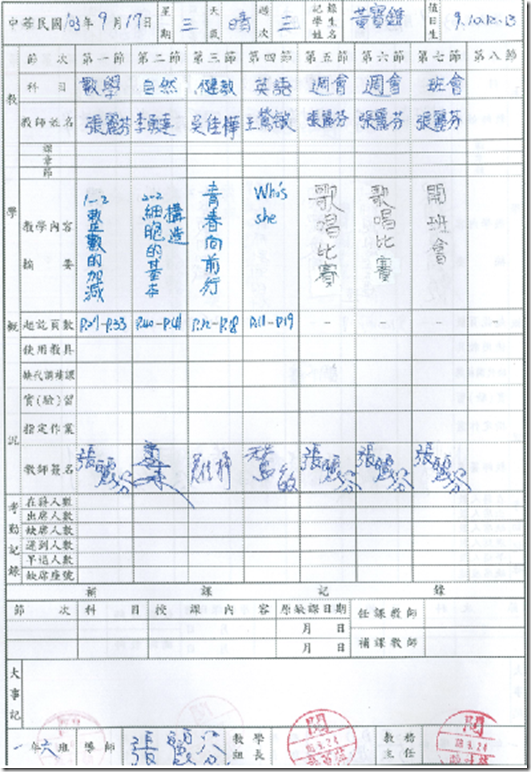 中華民國103年9月17日 星期 三 天氣 晴 週次 三 記錄學生姓名 值日生 9.10.12.13
節次 第一節 第二節 第三節 第四節 第五節 第六節 第七節 第八節
科目 數學 自然 健教 英語 週會 週會 班會
教師姓名 張麗芬 李 吳佳 王鶯敏 張麗芬 張麗芬 張麗芬
課
章
節
教學內容摘要 1-2整數的加減 2-2細胞的基本構造 青春向前行 Who's she 歌唱比賽 歌唱比賽 開班會
起訖頁數 P.27-P.33 P.40-P.41 P.12-P.18 P.11-P.19 - - - -
使用教具
缺代調補課
實(驗)習
指定作業
教師簽名 張麗芬 張麗芬 張麗芬 張麗芬
教學概況
考勤記錄
在籍人數
出席人數
缺席人數
遲到人數
早退人數
缺席座號
補課記錄
節次 科目 授課內容 原缺課日期 任課教師
月 日
月 日 補課教師
大事記
一年六班 導師 張麗芬 教學組長 閱 教務主任 閱